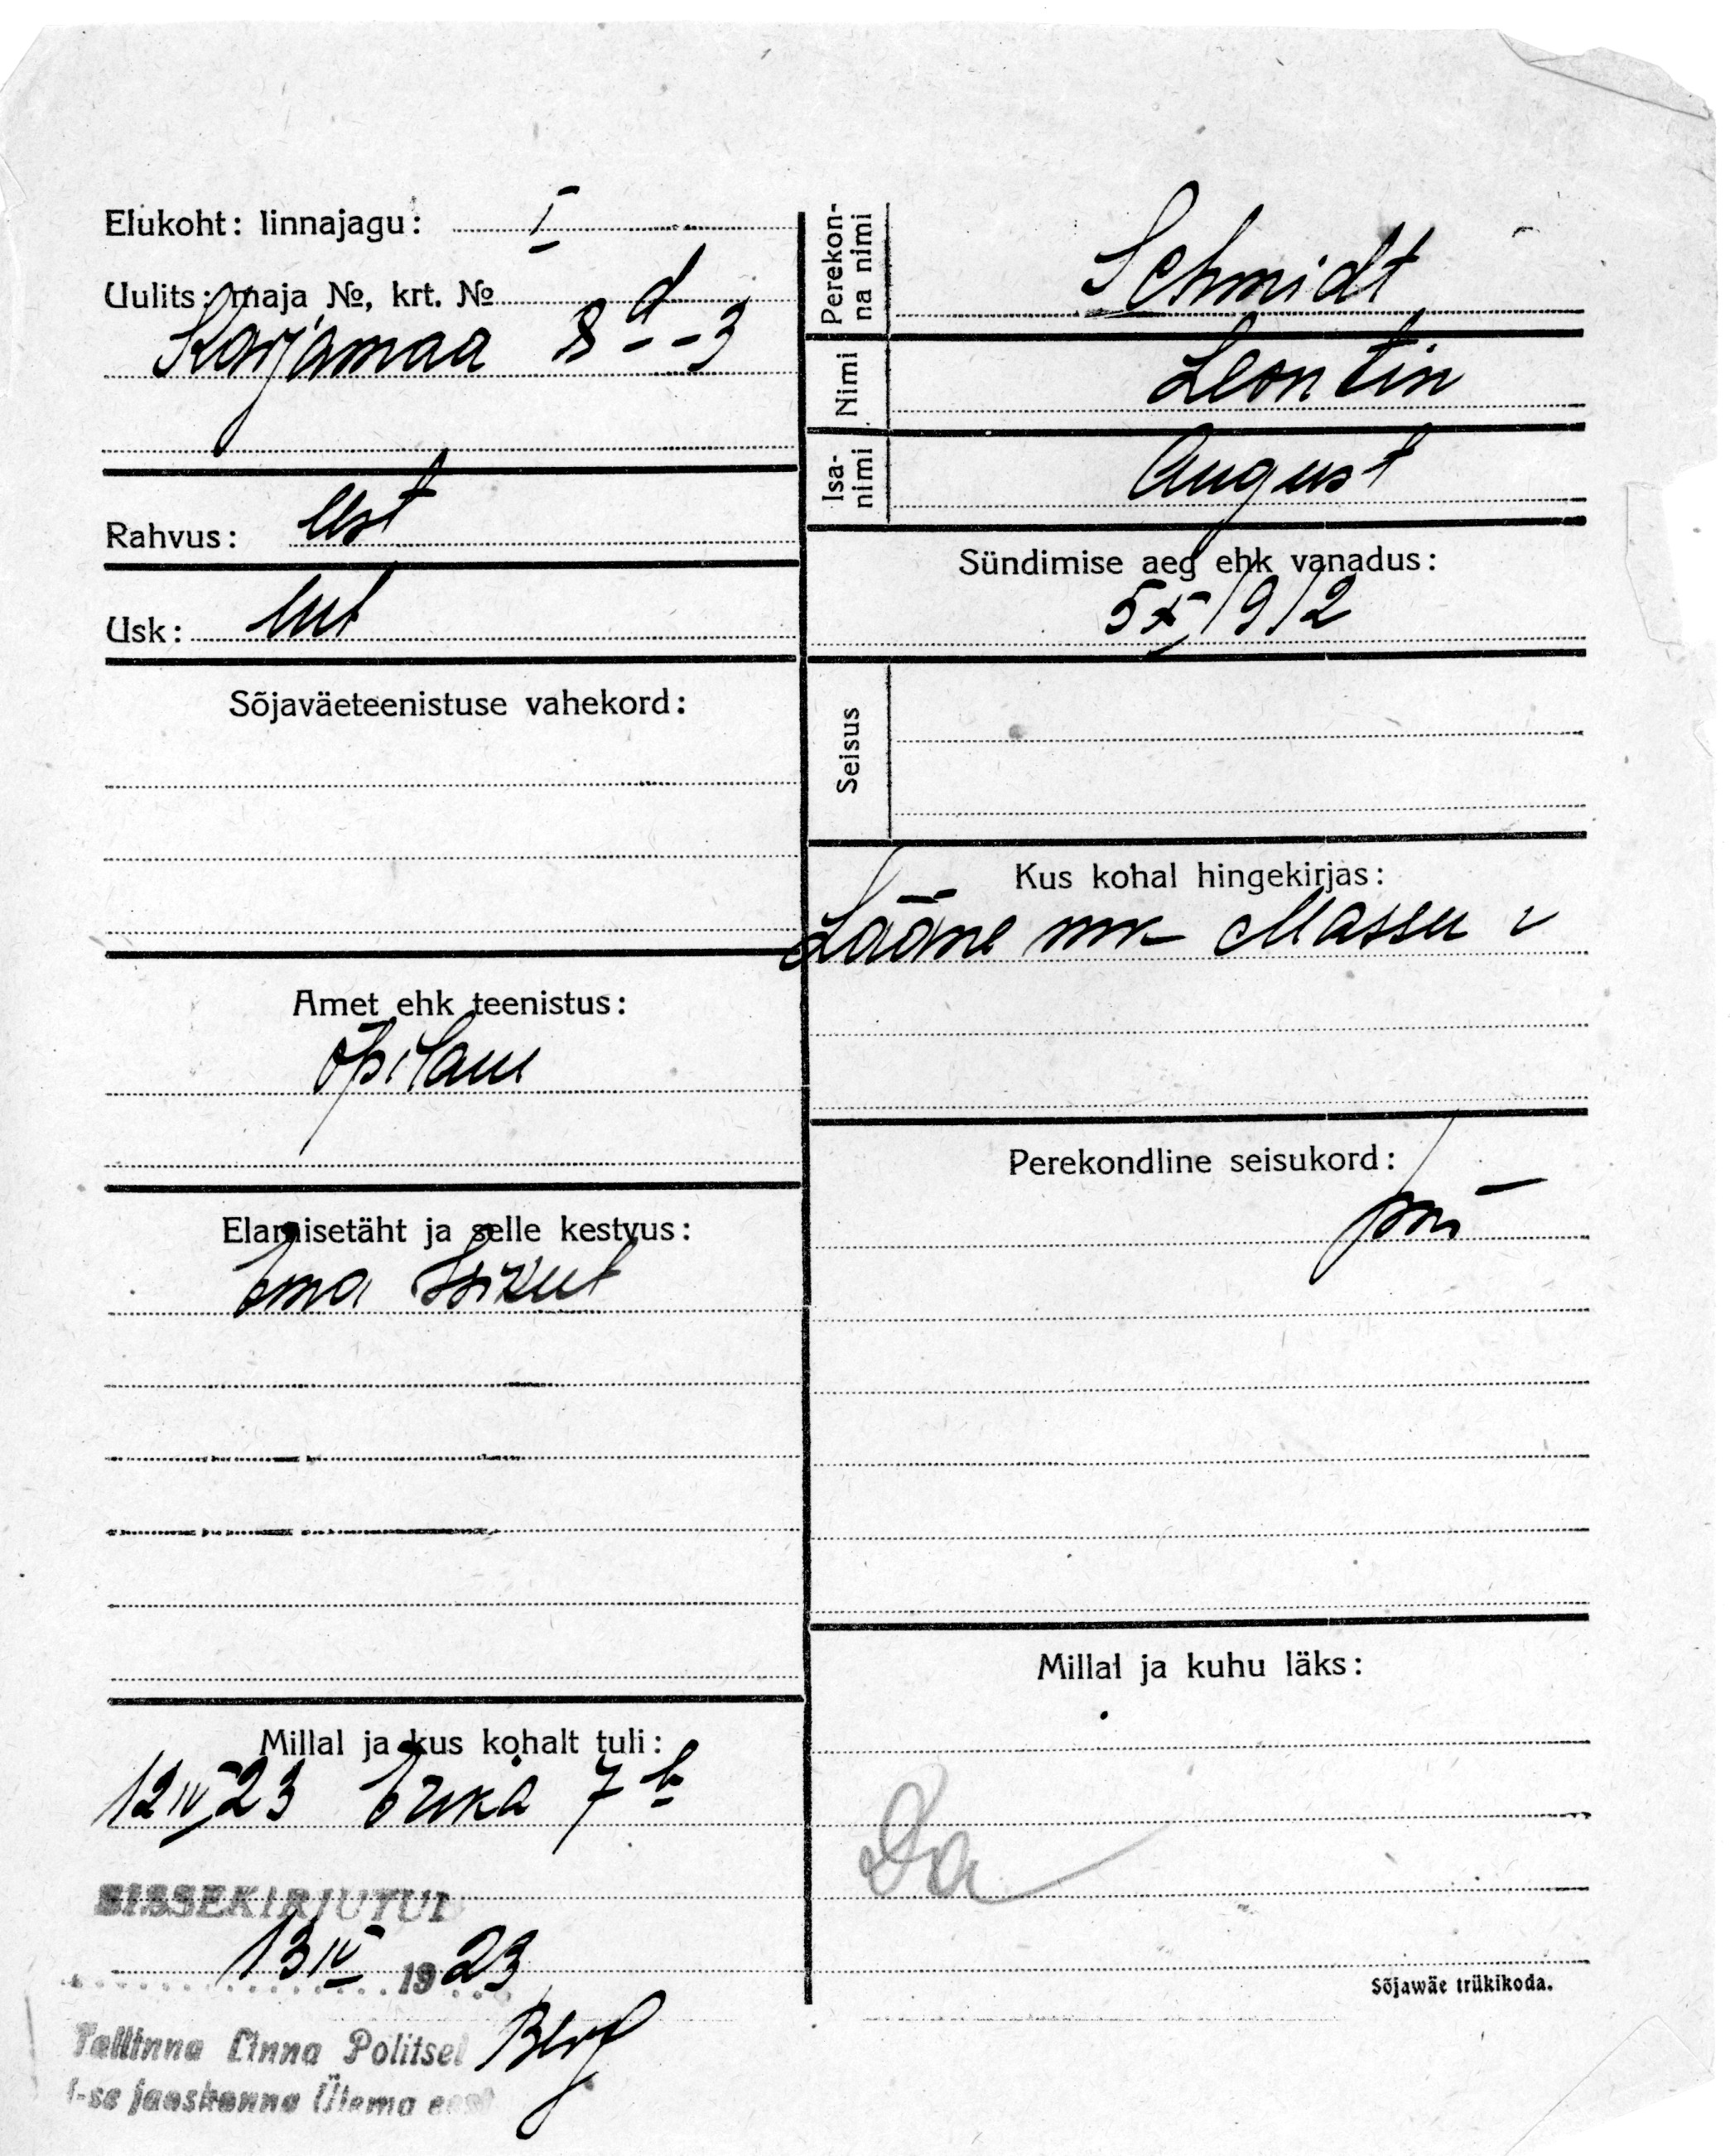 Elukoht: linnajagu: I
Uulits: maja №, krt. №
Karjamaa 8 d - 3
Rahvus: eest
Usk: lut
Sõjaväeteenistuse vahekord:
Amet ehk teenistus:
õpilane
Elamisetäht ja selle kestvus:
Ema isikut
Millal ja kus kohalt tuli:
12 IV 23 Erika 7 b
SISSEKIRJUTUD
13 IV 1923
Tallinna Linna Politsei
I-se jaoskonna Ülema eest
Berg
Perekonna nimi
Schmidt
Nimi
Leontin
Isanimi
August
Sündimise aeg ehk vanadus:
5 X 1912
Seisus
Kus kohal hingekirjas:
Lääne mk Massu v
Perekondline seisukord:
Millal ja kuhu läks:
Da
Sõjawäe trükikoda.